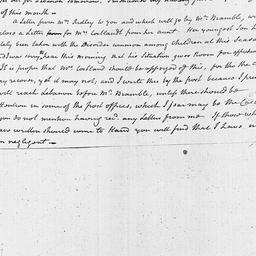 of this month —
a letter from Mr. Ridley to you and which will go by Mr. Bramble, w
close a letter for Mr. Cortlandt from her aunt. Her youngest Son h
lately been taken with the Disorder common among children at this Seas
and I was sorry to hear this morning that his Situation gives Room for apprehen
It is proper that Mrs. Cortland should be apprized of this, for tho the c
may recover, yet it may not; and I write this by the post because I pres
will reach Lebanon before Mr. Bramble, unless there should be
attention in some of the post offices, which I fear may be the Case
you do not mention having recd. any Letters from me. If those wh
have written should come to Hand you will find that I have n
n negligent. —